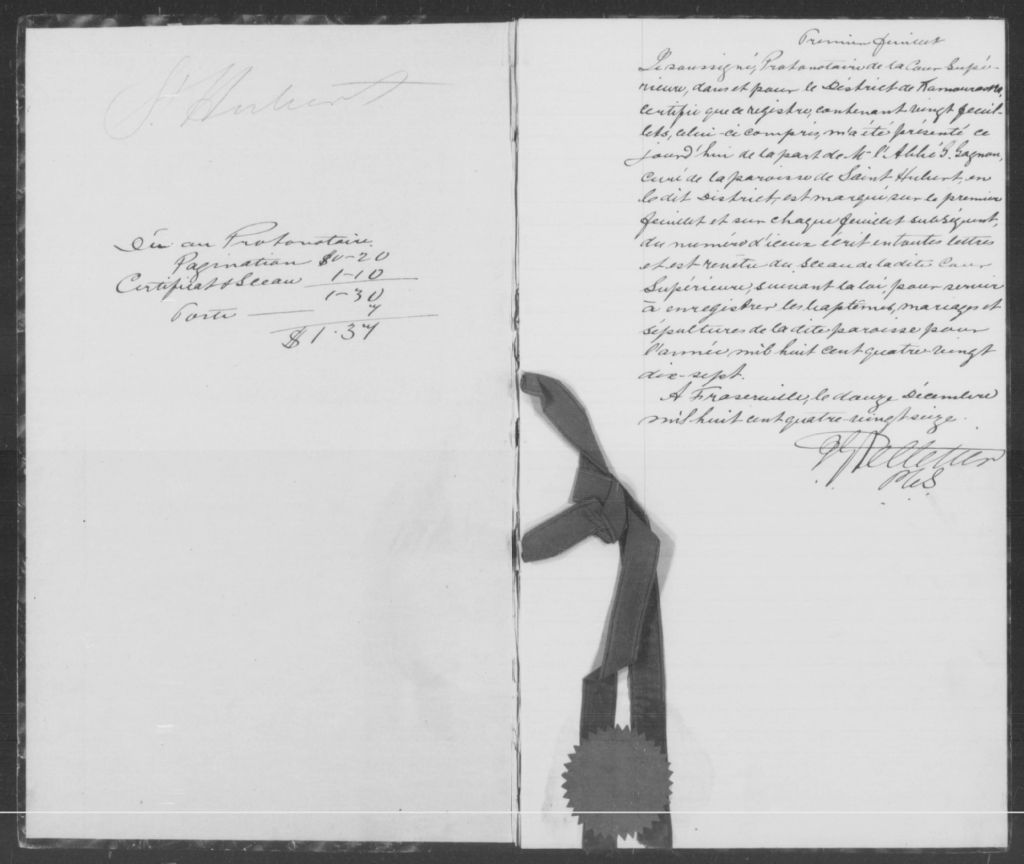 St Hubert
Dû au Protonotaire
Pagination $0-20
Certificat & Sceau 1-10
1-30
Poste — 7
$1.37
Premier feuillet
Je soussigné, Protonotaire de la Cour Supé-
rieure, dans et pour le District de Kamouraska,
certifie que ce registre, contenant vingt feuil-
lets, celui-ci compris, m'a été présenté ce
jourd'hui de la part de Mr l'Abbé G. Gagnon,
curé de la paroisse de Saint Hubert, en
le dit District, est marqué sur le premier
feuillet et sur chaque feuillet subséquent,
du numéro d'iceux écrit en toutes lettres
et est revêtu du Sceau de la dite Cour
Supérieure, suivant la loi, pour servir
à enregistrer les baptêmes, mariages et
sépultures de la dite paroisse pour
l'année, mil huit cent quatre-vingt
dix-sept.
A Fraserville, le douze Décembre
mil huit cent quatre-vingt seize.
Pelletier
P.C.S.